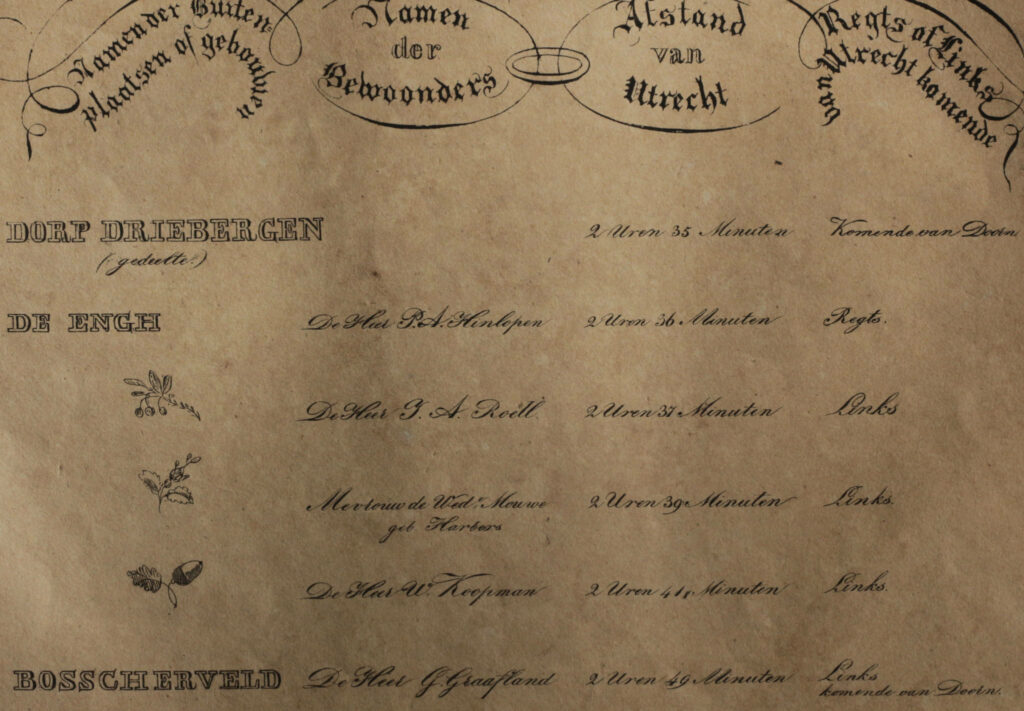 Namen der Buiten-
plaatsen of gebouwen
Namen
der
Bewoonders
Afstand
van
Utrecht
Regts of Links
van Utrecht komende
DORP DRIEBERGEN 2 Uren 35 Minuten Komende van Doorn
(: gedeelte :)
DE ENGH De Heer P. A. Hinlopen 2 Uren 36 Minuten Regts.
De Heer J. A. Roëll 2 Uren 37 Minuten Links
Mevrouw de Wed.e Mouwe 2 Uren 39 Minuten Links.
geb Harbers
De Heer W. Koopman 2 Uren 41 Minuten Links.
BOSSCHERVELD De Heer G Graafland 2 Uren 49 Minuten Links
komende van Doorn.